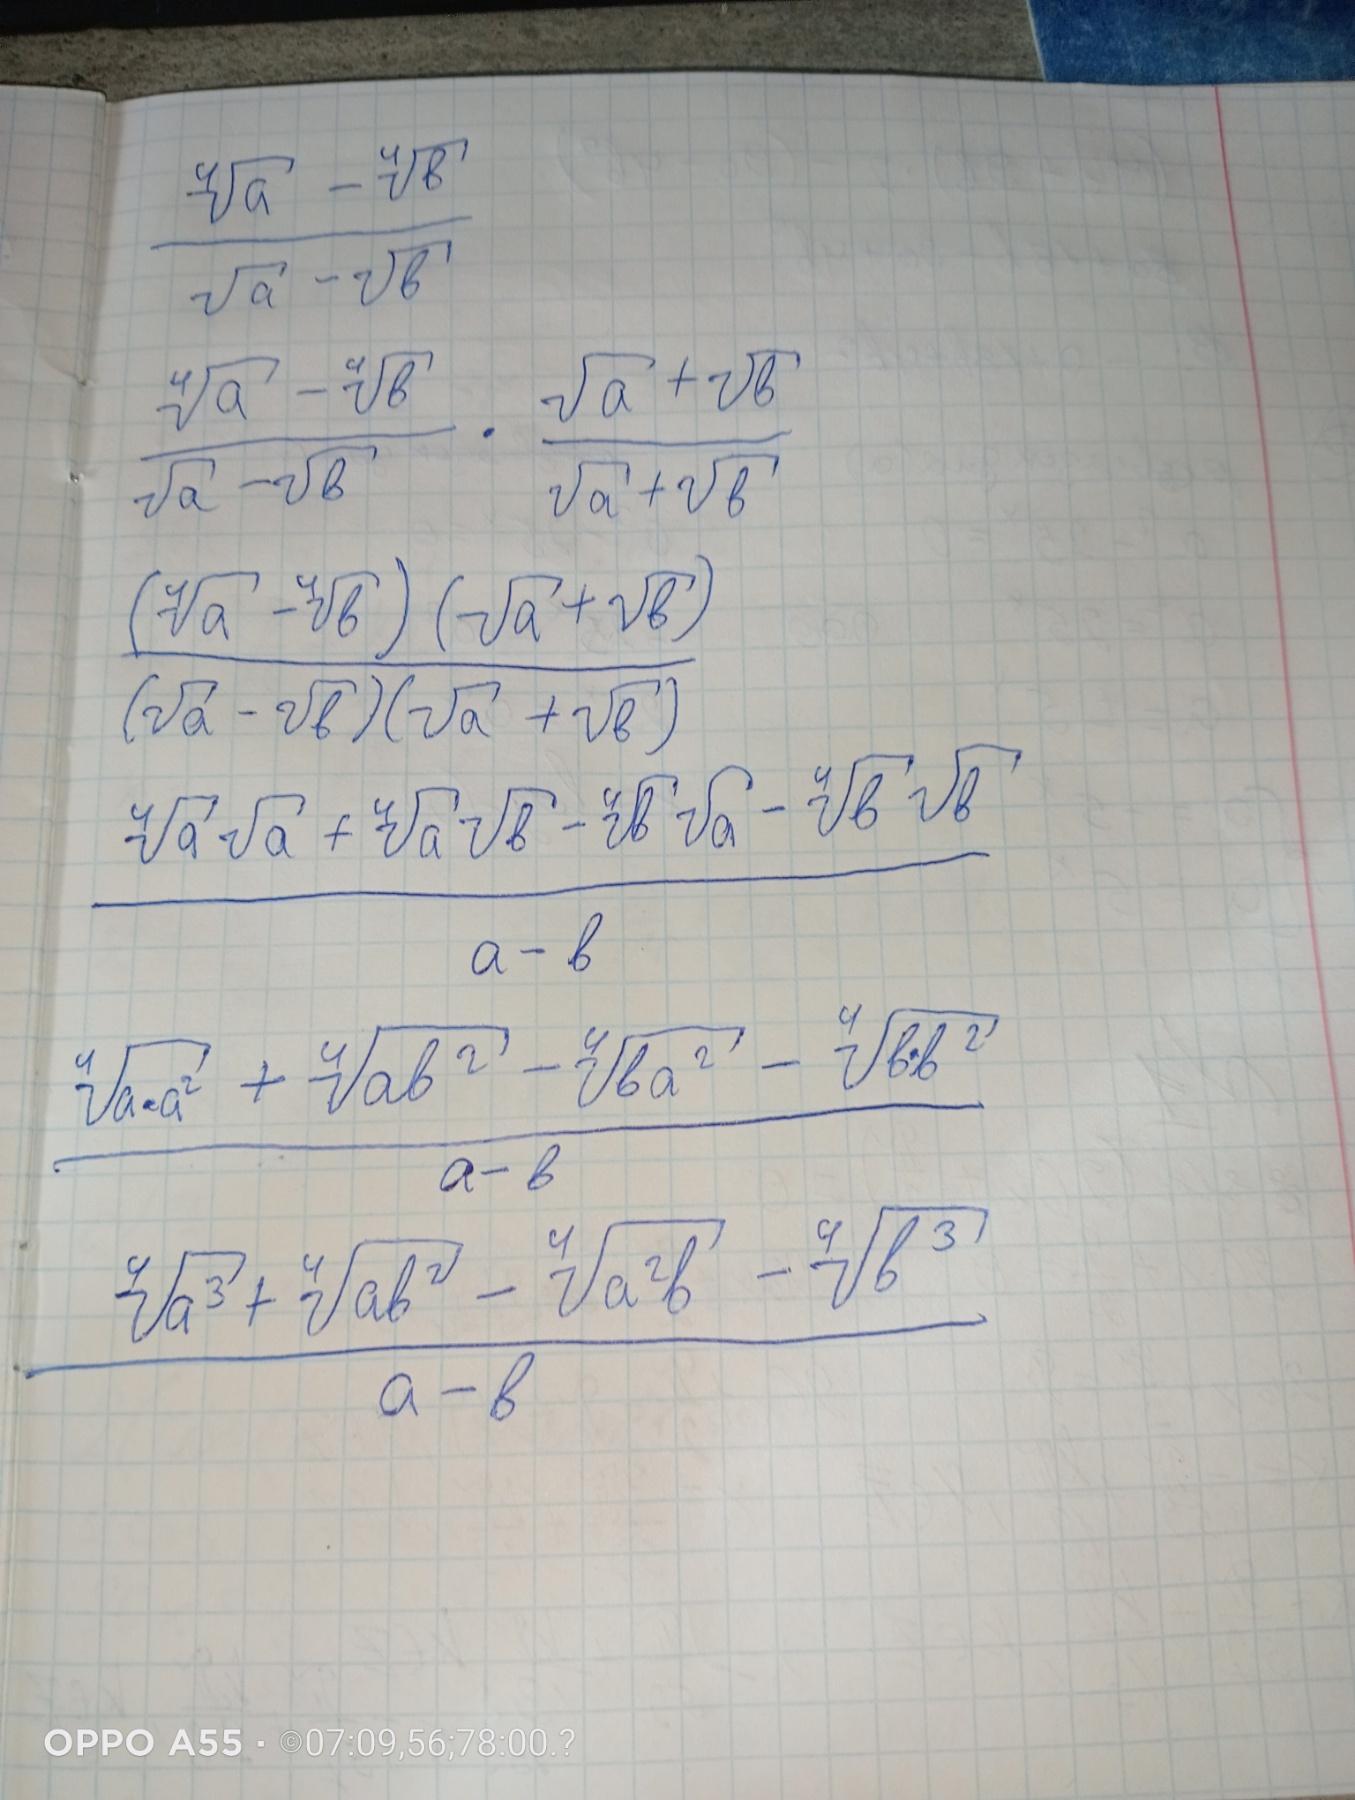 ⁴√a − ⁴√b
√a − √b
⁴√a − ⁴√b · √a + √b
√a − √b √a + √b
(⁴√a − ⁴√b)(√a + √b)
(√a − √b)(√a + √b)
⁴√a √a + ⁴√a √b − ⁴√b √a − ⁴√b √b
a − b
⁴√a·a² + ⁴√ab² − ⁴√ba² − ⁴√b·b²
a − b
⁴√a³ + ⁴√ab² − ⁴√a²b − ⁴√b³
a − b
OPPO A55 · ©07:09,56;78:00.?